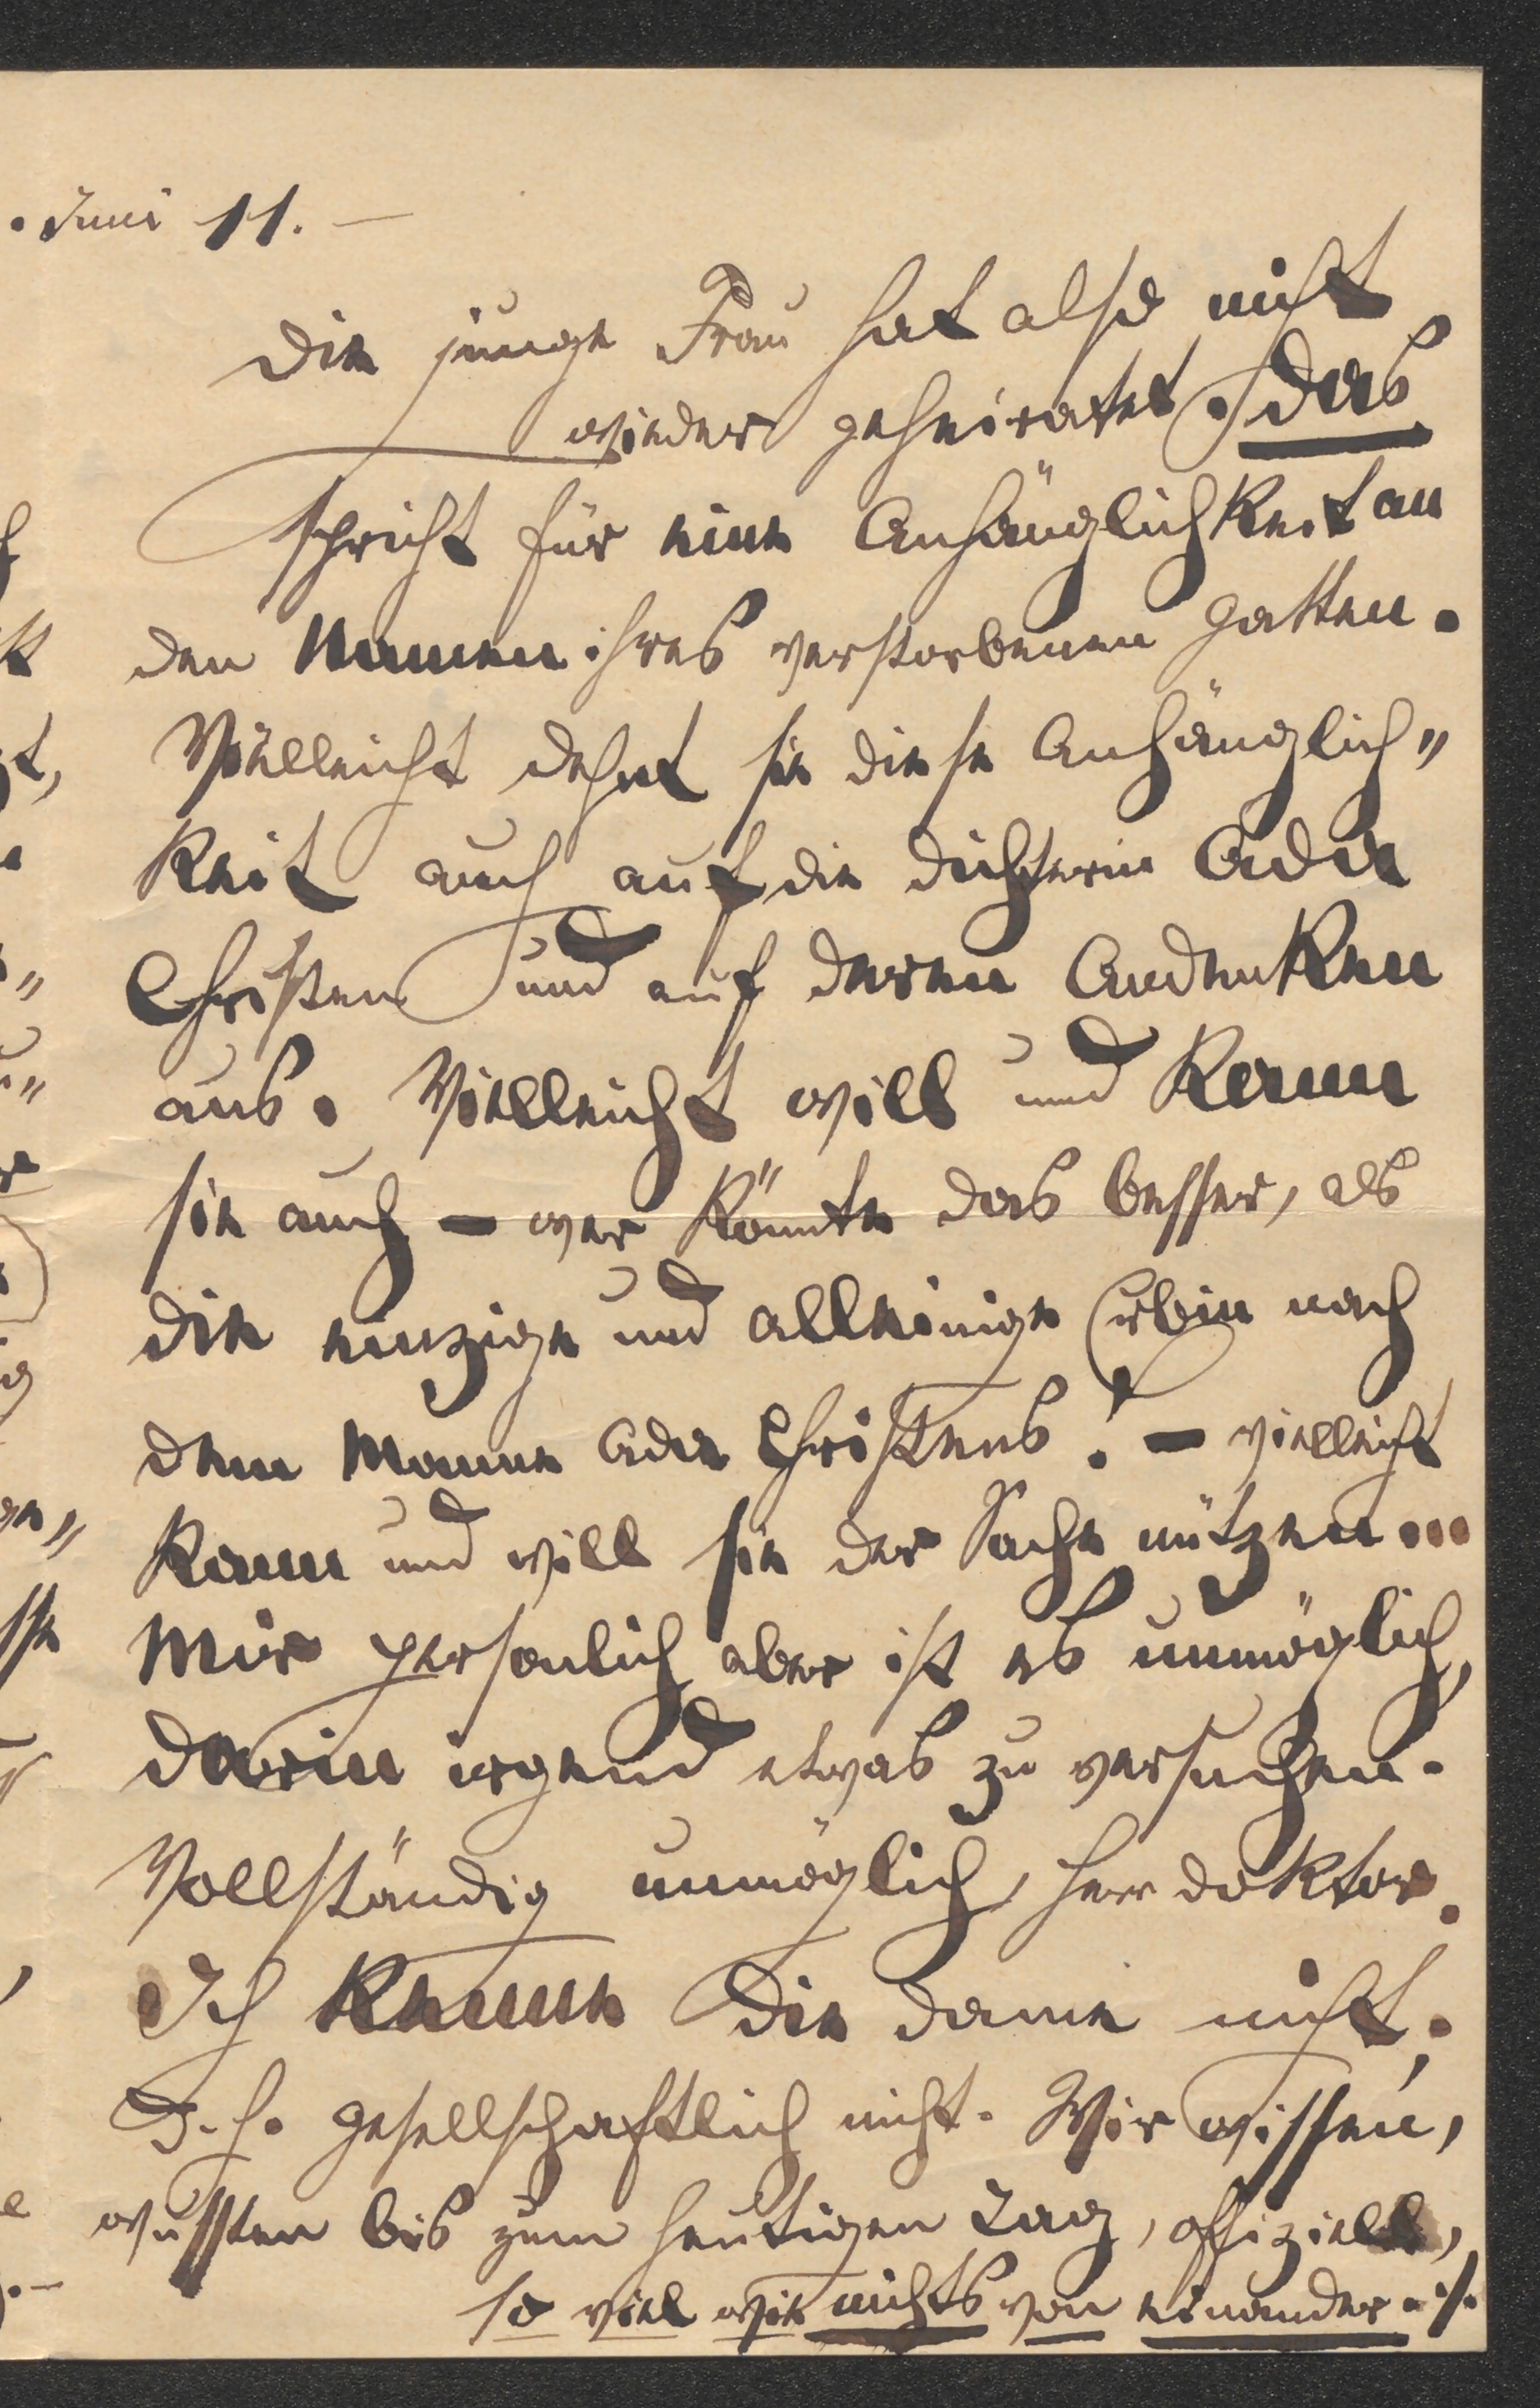 . Juni 11. —
Die junge Frau hat also nicht
wieder geheiratet. Das
spricht für eine Anhänglichkeit an
den Namen ihres verstorbenen Gatten.
Vielleicht dehnt sie diese Anhänglich„
keit auch auf die Dichterin Ada
Christen und auf deren Andenken
aus. Vielleicht will und kann
sie auch – wer könnte das besser, als
die einzige und alleinige Erbin nach
dem Manne Ada Christens! – vielleicht
kann und will sie der Sache nützen...
Mir persönlich aber ist es unmöglich,
darin irgend etwas zu versuchen.
Vollständig unmöglich, Herr Doktor.
Ich kenne die Dame nicht;
d. h. gesellschaftlich nicht. Wir wissen,
wußten bis zum heutigen Tag, offiziell,
so viel wie nichts von einander. ./.